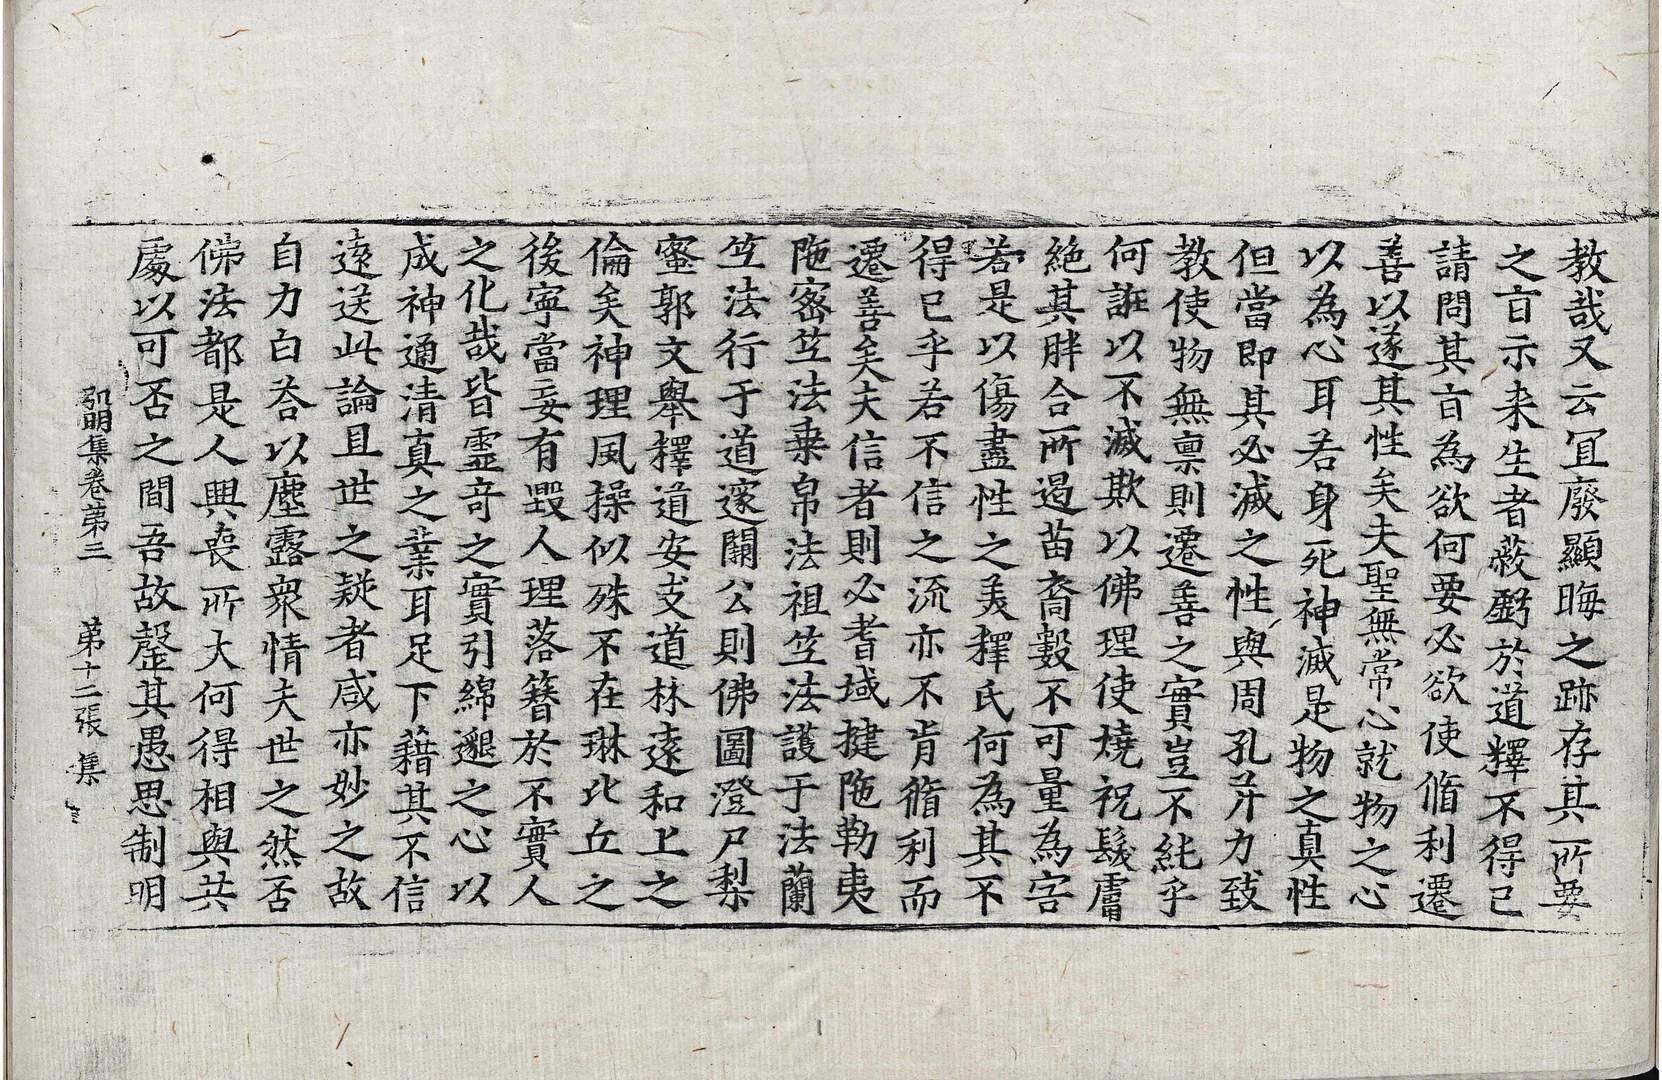 教哉又云宜廢顯晦之跡存其所要
之旨示来生者蔽虧於道釋不得已
請問其旨為欲何要必欲使脩利遷
善以遂其性矣夫聖無常心就物之心
以為心耳若身死神滅是物之真性
但當即其必滅之性與周孔并力致
教使物無禀則遷善之實豈不純乎
何誑以不滅欺以佛理使燒祝髮膚
絶其胖合所遏苗裔數不可量為害
若是以傷盡性之美釋氏何為其不
得已乎若不信之流亦不肯脩利而
遷善矣夫信者則必耆域揵陁勒夷
陁密竺法乗帛法祖竺法護于法蘭
竺法行于道邃闕公則佛圖澄尸梨
蜜郭文舉釋道安支道林遠和上之
倫矣神理風操似殊不在琳比丘之
後寧當妄有毀人理落簪於不實人
之化哉皆靈奇之實引綿邈之心以
成神通清真之業耳足下藉其不信
遠送此論且世之疑者咸亦妙之故
自力白荅以塵露衆情夫世之然否
佛法都是人興喪所大何得相與共
處以可否之間吾故罄其愚思制明
弘明集卷第三　第十二張　集